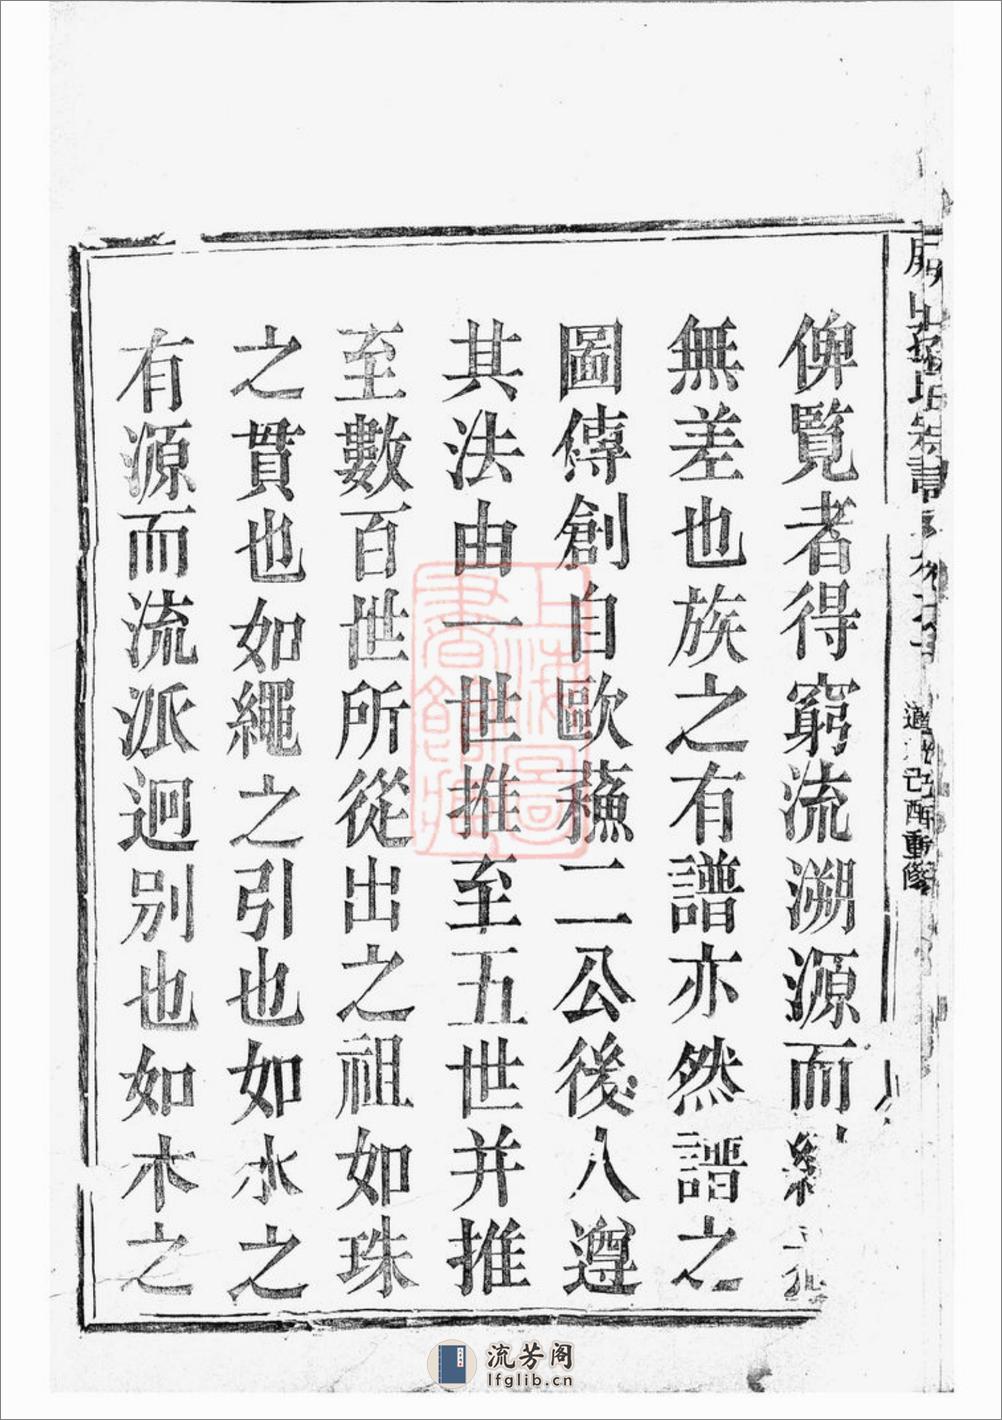 俾覽者得窮流溯源而
無差也族之有譜亦然譜之
圖傳創自歐蘓二公後人遵
其法由一世推至五世并推
至數百世所從出之祖如珠
之貫也如繩之引也如水之
有源而流派迥别也如木之
己酉重修
上海圖書館藏
流芳阁
lfglib.cn